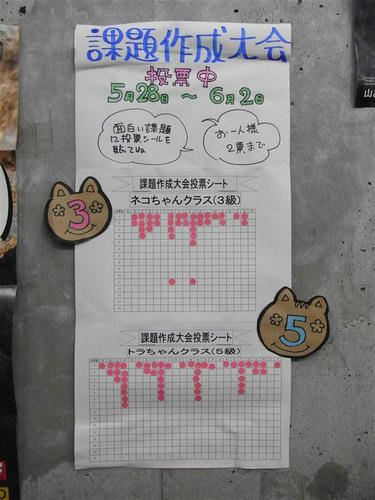 課題作成大会
投票中
5月28日 ～ 6月2日
面白い課題
に投票シールを
貼ってね
お一人様
2票まで
課題作成大会投票シート
ネコちゃんクラス(3級)
3
5
課題作成大会投票シート
トラちゃんクラス(5級)